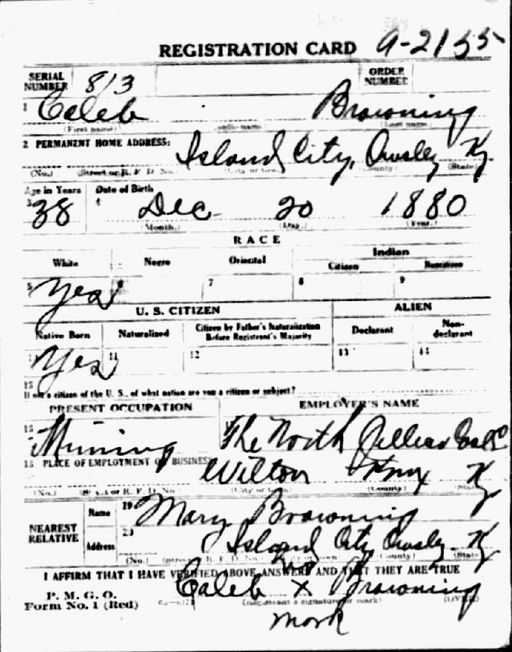 REGISTRATION CARD A-2155
SERIAL NUMBER 813 ORDER NUMBER
1 Caleb Browning
(First name) (Last name)
2 PERMANENT HOME ADDRESS: Island City, Owsley Ky.
(No.) (Street or R. F. D. No.) (City or town) (County) (State)
Age in Years Date of Birth
3 38 4 Dec 20 1880
(Month.) (Day.) (Year.)
RACE
White Negro Oriental Indian
Citizen Noncitizen
5 Yes 6 7 8 9
U. S. CITIZEN ALIEN
Native Born Naturalized Citizen by Father's Naturalization Before Registrant's Majority Declarant Non-declarant
Yes 11 12 13 14
15
If not a citizen of the U. S., of what nation are you a citizen or subject?
PRESENT OCCUPATION EMPLOYER'S NAME
Mining The North Jellico Coal Co
PLACE OF EMPLOYMENT OR BUSINESS Wilton Knox Ky
(No.) (Street or R. F. D. No.) (City or town) (County) (State)
NEAREST RELATIVE Name 19 Mary Browning
Address 20 Island City Owsley Ky
(No.) (County) (State)
I AFFIRM THAT I HAVE VERIFIED ABOVE ANSWERS AND THAT THEY ARE TRUE
P. M. G. O.
Form No. 1 (Red) Caleb X Browning
(Registrant's signature or mark)
mark